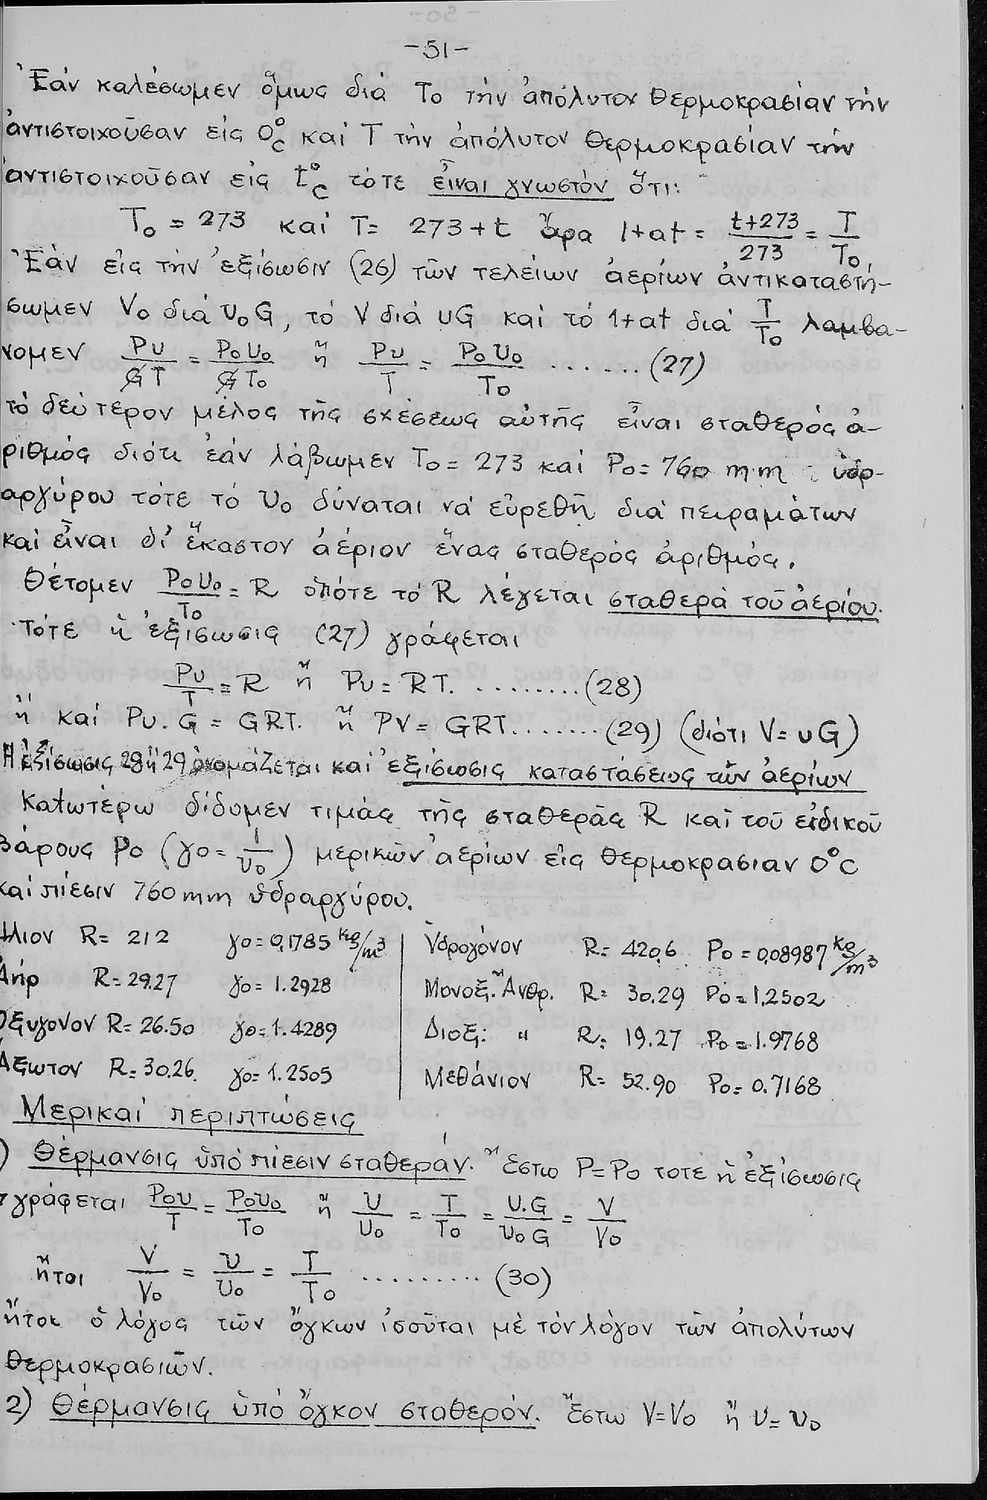 -51-
Ἐάν καλέσωμεν ὅμως διά Το τήν ἀπόλυτον θερμοκρασίαν τήν
ἀντιστοιχοῦσαν εἰς 0°c καί Τ τήν ἀπόλυτον θερμοκρασίαν τήν
ἀντιστοιχοῦσαν εἰς t°c τότε εἶναι γνωστόν ὅτι:
Το = 273 καί Τ= 273+t ἄρα 1+at = t+273/273 = T/To,
Ἐάν εἰς τήν ἐξίσωσιν (26) τῶν τελείων ἀερίων ἀντικαταστή-
σωμεν Vo διά υoG, τό V διά υG καί τό 1+at διά T/To λαμβα-
νομεν Pυ/GT = Poυo/GTo ἤ Pυ/T = Poυo/To ........ (27)
τό δεύτερον μέλος τῆς σχέσεως αὐτῆς εἶναι σταθερός ἀ-
ριθμός διότι ἐάν λάβωμεν To = 273 καί Po = 760 mm ὑδρ-
αργύρου τότε τό υo δύναται νά εὑρεθῆ διά πειραμάτων
καί εἶναι δι' ἕκαστον ἀέριον ἕνας σταθερός ἀριθμός.
Θέτομεν Poυo/To = R ὁπότε τό R λέγεται σταθερά τοῦ ἀερίου.
Τότε ἡ ἐξίσωσις (27) γράφεται
Pυ/T = R ἤ Pυ = RT. .........(28)
ἤ καί Pυ.G = GRT. ἤ PV = GRT........(29) (διότι V = υG)
Ἡ ἐξίσωσις 28 ἤ 29 ὀνομάζεται καί ἐξίσωσις καταστάσεως τῶν ἀερίων
Κατωτέρω δίδομεν τιμάς τῆς σταθερᾶς R καί τοῦ εἰδικοῦ
βάρους Po (γo = 1/υo) μερικῶν ἀερίων εἰς θερμοκρασιαν 0°C
καί πίεσιν 760 mm ὑδραργύρου.
Ηλιον R= 212 γo = 0,1785 kg/m3
Ἀήρ R= 29.27 γo = 1.2928
Ὀξυγονον R= 26.50 γo = 1.4289
Ἄζωτον R= 30.26. γo = 1.2505
Ὑδρογόνον R= 420,6. Po = 0,08987 kg/m3
Μονοξ. Ἄνθρ. R= 30.29 Po = 1,2502
Διοξ: " R= 19.27 Po = 1.9768
Μεθάνιον R= 52.90 Po = 0.7168
Μερικαί περιπτώσεις
) Θέρμανσις ὑπό πίεσιν σταθεράν. Ἔστω P=Po τοτέ ἡ ἐξίσωσις
γράφεται Poυ/T = Poυo/To ἤ υ/υo = T/To = υ.G/υoG = V/Vo
ἤτοι V/Vo = υ/υo = T/To .......... (30)
ἤτοι ὁ λόγος τῶν ὄγκων ἰσοῦται μέ τόν λόγον τῶν ἀπολύτων
θερμοκρασιῶν.
2) Θέρμανσις ὑπό ὄγκον σταθερόν. Ἔστω V=Vo ἤ υ = υo